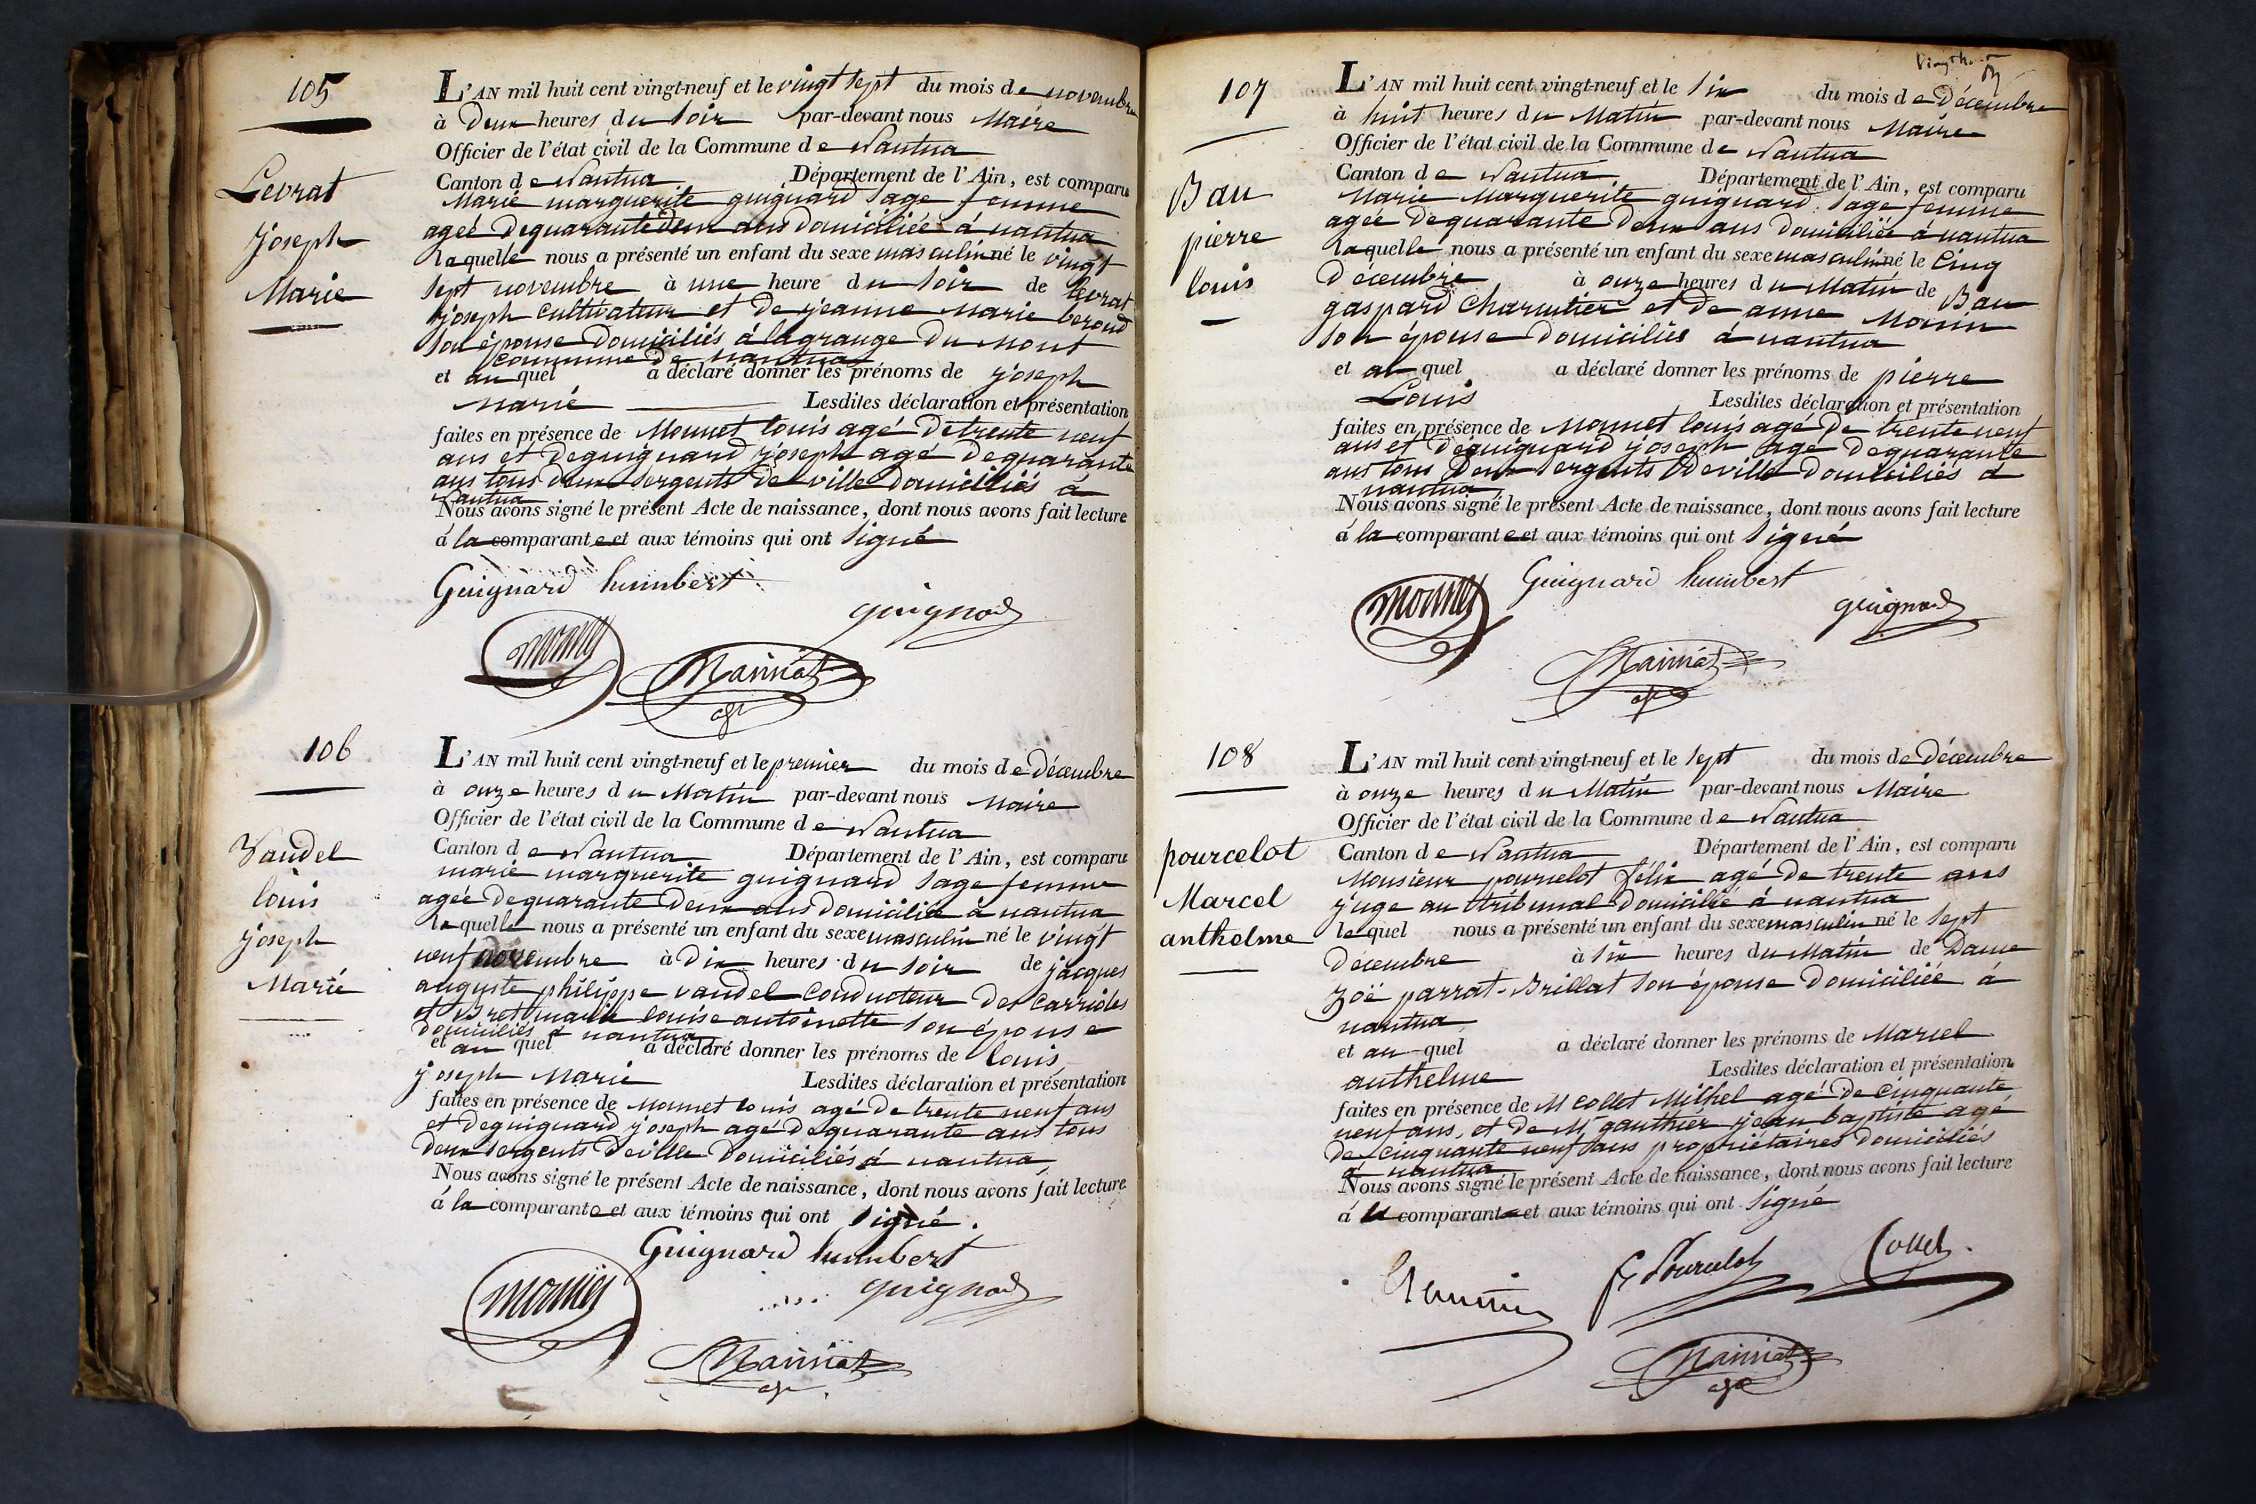 105
Levrat
joseph
Marie
L'AN mil huit cent vingt-neuf et le vingt sept du mois de novembre
à Deux heures du soir par-devant nous Maire
Officier de l'état civil de la Commune de Nantua
Canton de Nantua Département de l'Ain, est comparu
Marie marguerite guignard sage femme
agée de quarante deux ans domiciliée à nantua
laquelle nous a présenté un enfant du sexe masculin né le vingt
sept novembre à une heure du soir de levrat
joseph cultivateur et de jeanne marie beroud
son épouse domiciliés à lagrange du mont
commune de nantua
et au quel a déclaré donner les prénoms de joseph
marie Lesdites déclaration et présentation
faites en présence de Monnet louis agé de trente neuf
ans et de guignard joseph agé de quarante
ans tous deux sergents de ville domiciliés à
Nantua
Nous avons signé le présent Acte de naissance, dont nous avons fait lecture
à la comparante et aux témoins qui ont signé
Guignard humbert
guignard
monnet
106
Vandel
louis
joseph
Marie
L'AN mil huit cent vingt-neuf et le premier du mois de Décembre
à onze heures du Matin par-devant nous Maire
Officier de l'état civil de la Commune de Nantua
Canton de Nantua Département de l'Ain, est comparu
marie marguerite guignard sage femme
agée de quarante deux ans domiciliée à nantua
laquelle nous a présenté un enfant du sexe masculin né le vingt
neuf novembre à Dix heures du soir de jacques
auguste philippe vandel conducteur des carrioles
et Bret marie louise antoinette son épouse
domiciliés à nantua
et au quel a déclaré donner les prénoms de louis
joseph Marie Lesdites déclaration et présentation
faites en présence de monnet louis agé de trente neuf ans
et de guignard joseph agé de quarante ans tous
deux sergents de ville domiciliés à nantua
Nous avons signé le présent Acte de naissance, dont nous avons fait lecture
à la comparante et aux témoins qui ont signé.
Guignard humbert
guignard
monnet
107
Bau
pierre
louis
L'AN mil huit cent vingt-neuf et le six du mois de Décembre
à huit heures du Matin par-devant nous Maire
Officier de l'état civil de la Commune de Nantua
Canton de Nantua Département de l'Ain, est comparu
Marie Marguerite guignard sage femme
agée de quarante deux ans domiciliée à nantua
laquelle nous a présenté un enfant du sexe masculin né le cinq
Décembre à onze heures du Matin de Bau
gaspard charcutier et de anne Monin
son épouse domiciliés à nantua
et au quel a déclaré donner les prénoms de pierre
Louis Lesdites déclaration et présentation
faites en présence de Monnet louis agé de trente neuf
ans et de guignard joseph agé de quarante
ans tous deux sergents de ville domiciliés à
nantua
Nous avons signé le présent Acte de naissance, dont nous avons fait lecture
à la comparante et aux témoins qui ont signé
Guignard humbert
monnet
guignard
108
pourcelot
Marcel
anthelme
L'AN mil huit cent vingt-neuf et le sept du mois de Décembre
à onze heures du Matin par-devant nous Maire
Officier de l'état civil de la Commune de Nantua
Canton de Nantua Département de l'Ain, est comparu
Monsieur pourcelot félix agé de trente ans
juge au tribunal domicilié à nantua
lequel nous a présenté un enfant du sexe masculin né le sept
décembre à six heures du Matin de Dame
zoë parrat-Brillat son épouse domiciliée à
nantua
et au quel a déclaré donner les prénoms de Marcel
anthelme Lesdites déclaration et présentation
faites en présence de M collet Michel agé de cinquante
neuf ans, et de Mr gauthier jean baptiste agé
de cinquante neuf ans propriétaires domiciliés
à nantua
Nous avons signé le présent Acte de naissance, dont nous avons fait lecture
à le comparant et aux témoins qui ont signé
f Pourcelot
Collet